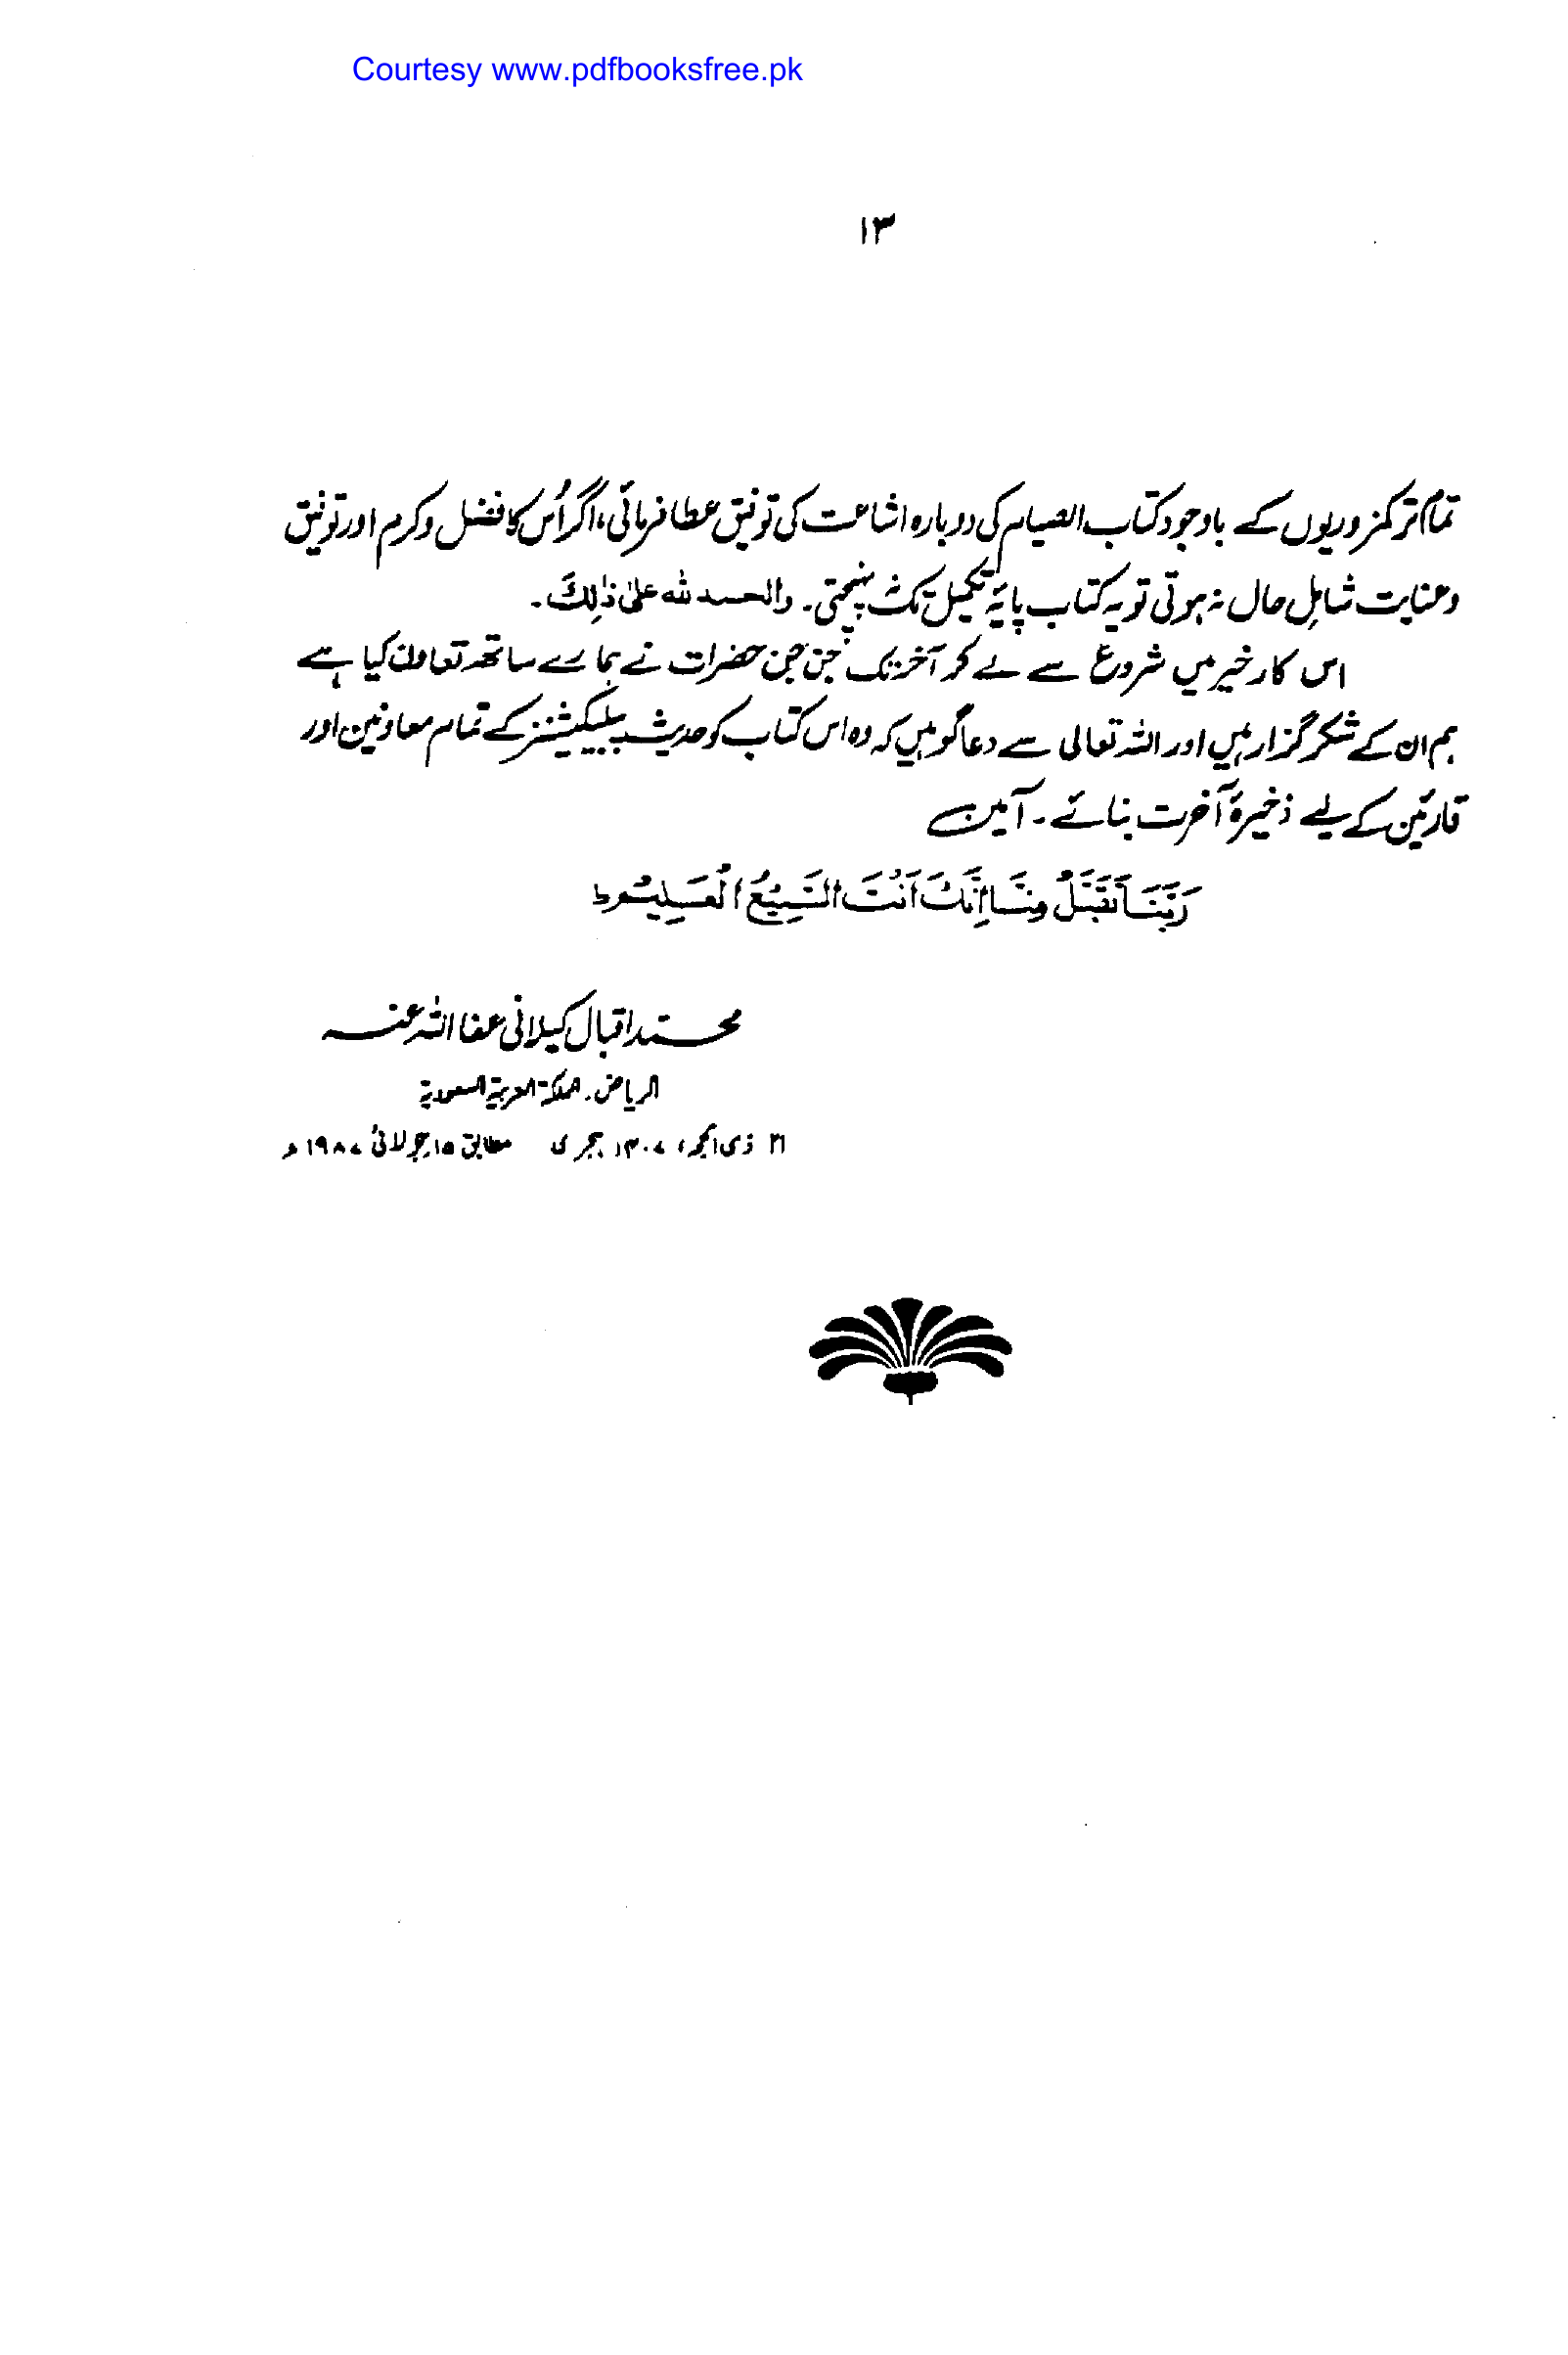 Courtesy www.pdfbooksfree.pk
۱۳
تمام تر کمزوریوں کے باوجود کتاب الصیام کی دوبارہ اشاعت کی توفیق عطا فرمائی، اگر اُس کا فضل و کرم اور توفیق
و عنایت شاملِ حال نہ ہوتی تو یہ کتاب پایۂ تکمیل تک نہ پہنچتی۔ والحمد لله علىٰ ذٰلِكَ۔
اس کار خیر میں شروع سے لے کر آخر تک جن جن حضرات نے ہمارے ساتھ تعاون کیا ہے
ہم ان کے شکر گزار ہیں اور اللہ تعالی سے دعا گو ہیں کہ وہ اس کتاب کو حدیث پبلیکیشنز کے تمام معاونین اور
قارئین کے لیے ذخیرۂ آخرت بنائے۔ آمین
رَبَّنَا تَقَبَّلْ مِنَّا إِنَّكَ أَنْتَ السَّمِيعُ الْعَلِيمُ ط
محمد اقبال کیلانی عفا اللہ عنہ
الریاض۔ المملکۃ العربیۃ السعودیۃ
ذی الحجہ، ۱۴۰۷ ہجری مطابق ۱۵ جولائی ۱۹۸۷ م